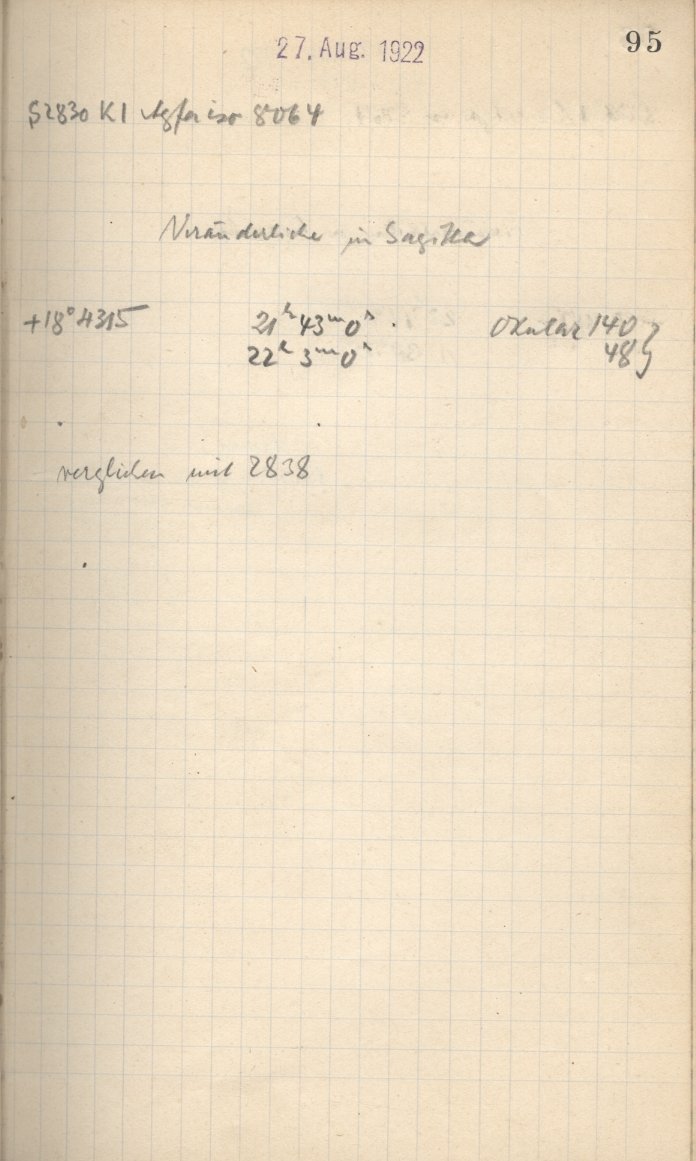 27. Aug. 1922
95
S2830 K1 Agfa iso 8064
Veränderliche in Sagitta
+18° 4315 21h 43m 0s . Okular 140 }
22h 3m 0s 48 }
verglichen mit 2838